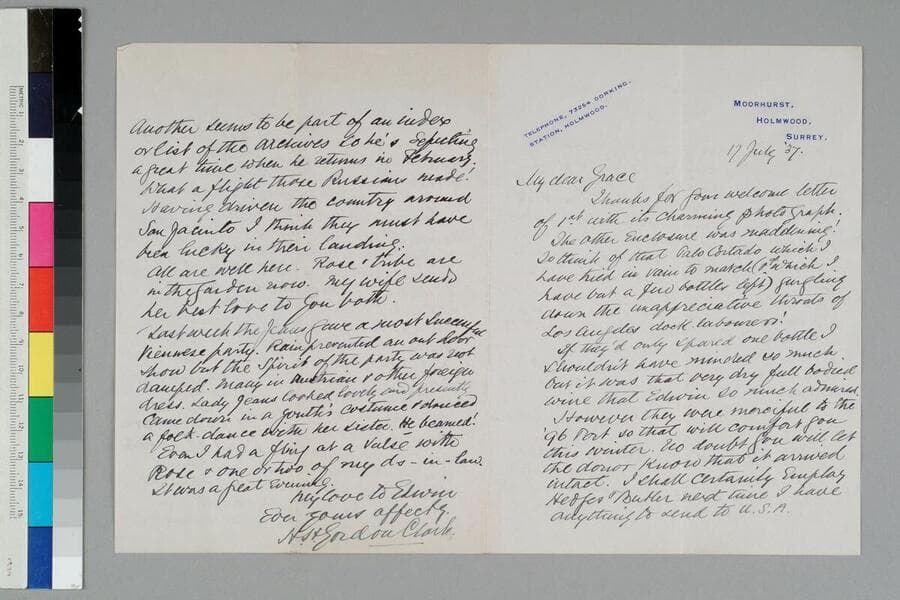 TELEPHONE, 73254 DORKING.
STATION, HOLMWOOD.
MOORHURST,
HOLMWOOD,
SURREY.
17 July '37.
My dear Grace
Thanks for your welcome letter
of 1st with its charming photograph.
The other enclosure was maddening!
To think of that Palo Cortado which I
have tried in vain to match (& which I
have but a few bottles left) gurgling
down the inappreciative throats of
Los Angeles dock labourers!
If they'd only spared one bottle I
shouldn't have minded so much
but it was that very dry full bodied
wine that Edwin so much admired.
However they were merciful to the
'96 Port so that will comfort you
this winter. No doubt you will let
the donor know that it arrived
intact. I shall certainly employ
Hedges & Butler next time I have
anything to send to U.S.A.
Another seems to be part of an index
or list of the archives so he's
a great time when he returns in February.
What a flight those Russians made!
Having driven the country around
San Jacinto I think they must have
been lucky in their landing.
All are well here. Rose & tribe are
in the garden now. My wife sends
her best love to you both.
Last week the Jeans gave a most successful
Viennese party. Rain prevented an out door
show but the spirit of the party was not
damped. Many in Austrian & other foreign
dress. Lady Jeans looked lovely and presently
came down in a youth's costume & danced
a folk-dance with her sister. He beamed!
Even I had a fling at a valse with
Rose & one or two of my ds-in-law.
It was a great evening.
My love to Edwin
Ever yours affectly
H. H. Gordon Clark.